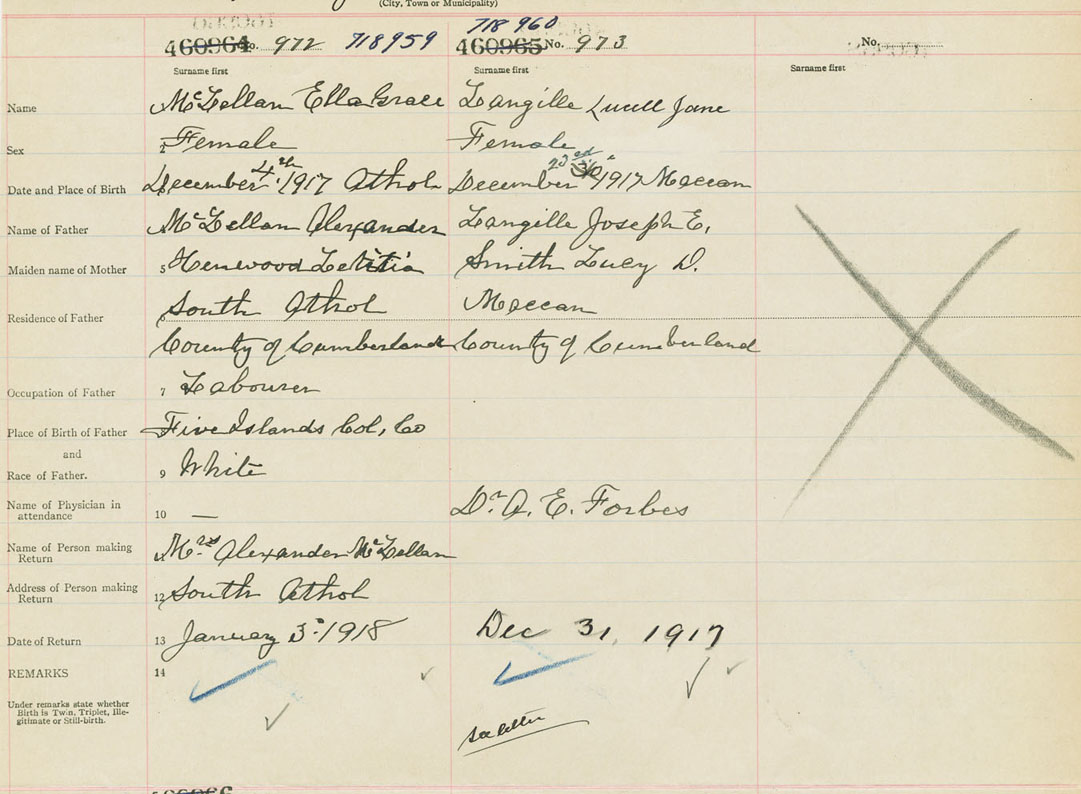 (City, Town or Municipality)
718960
460964 No. 972 718959 460965 No. 973 No.
Surname first Surname first Surname first
Name McLellan Ella Grace Langille Luell Jane
Sex 2 Female Female
23rd
Date and Place of Birth December 4th 1917 Athol December 1917 Maccan
Name of Father McLellan Alexander Langille Joseph E.
Maiden name of Mother 5 Henwood Letitia Smith Lucy D.
Residence of Father South Athol Maccan
County of Cumberland County of Cumberland
Occupation of Father 7 Labourer
Place of Birth of Father Five Islands Col, Co
and
Race of Father. 9 White
Name of Physician in
attendance 10 — Dr. A. E. Forbes
Name of Person making
Return Mrs Alexander McLellan
Address of Person making
Return 12 South Athol
Date of Return 13 January 3. 1918 Dec 31, 1917
REMARKS 14
Under remarks state whether
Birth is Twin, Triplet, Ille-
gitimate or Still-birth.
see letter